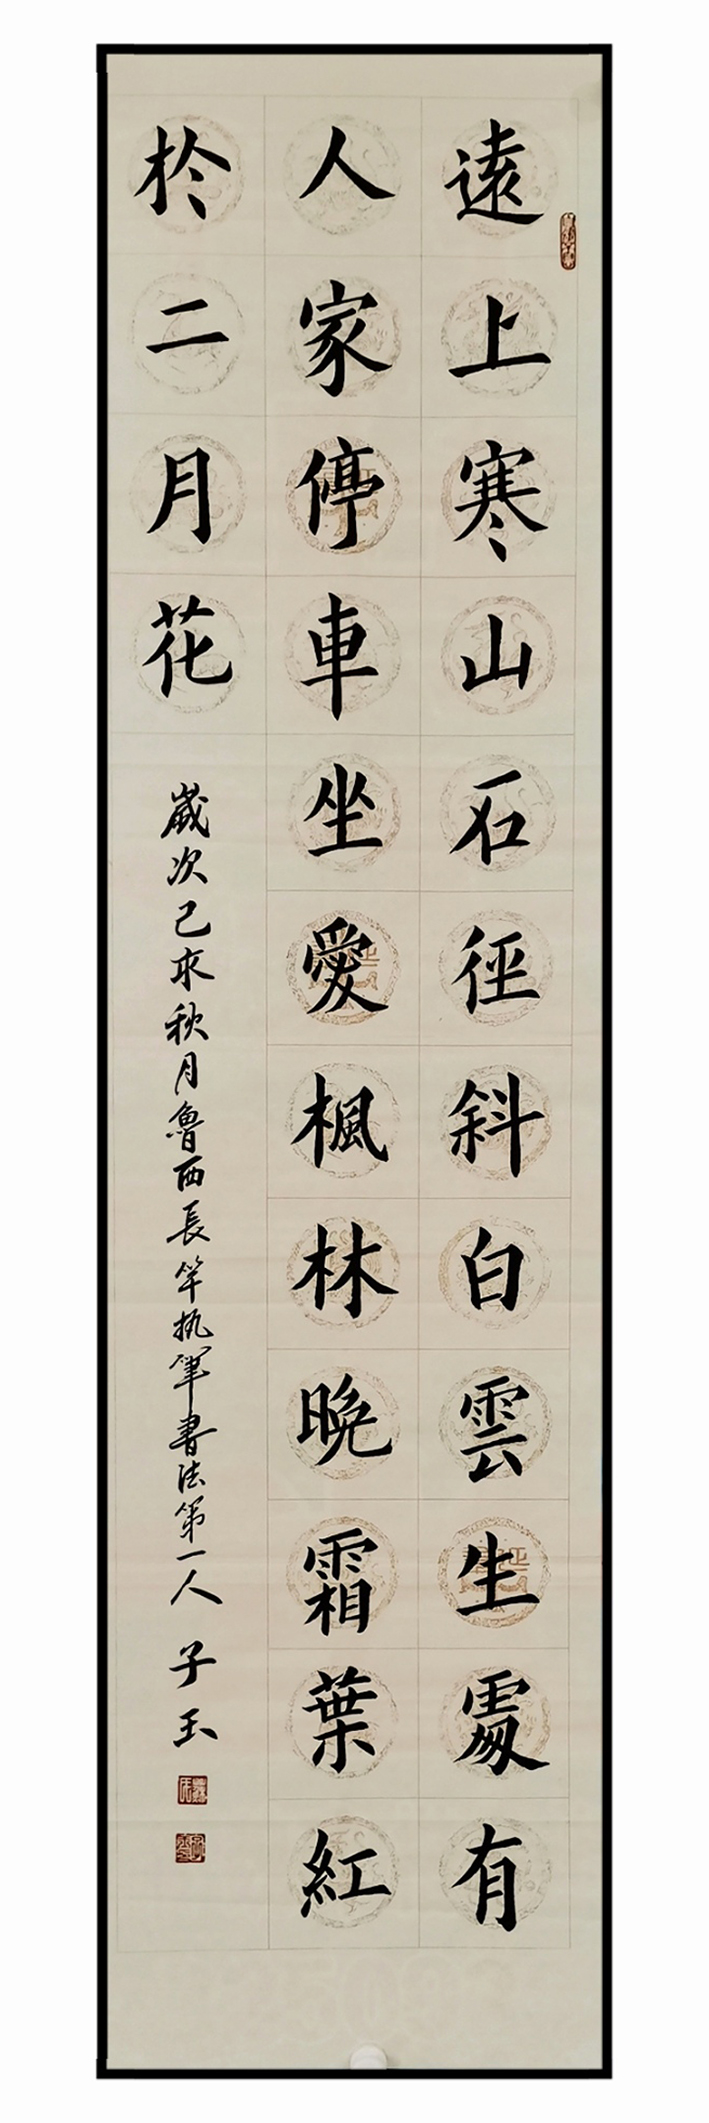 遠上寒山石徑斜白雲生處有
人家停車坐愛楓林晚霜葉紅
於二月花
歲次己亥秋月魯西長竿執筆書法第一人 子玉